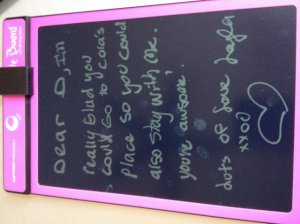 Board
Dear D, I'm
really Glad you
could Go to Cola's
place so you could
also stay with me.
you're awesome.
Lots of love Layla
xxoo